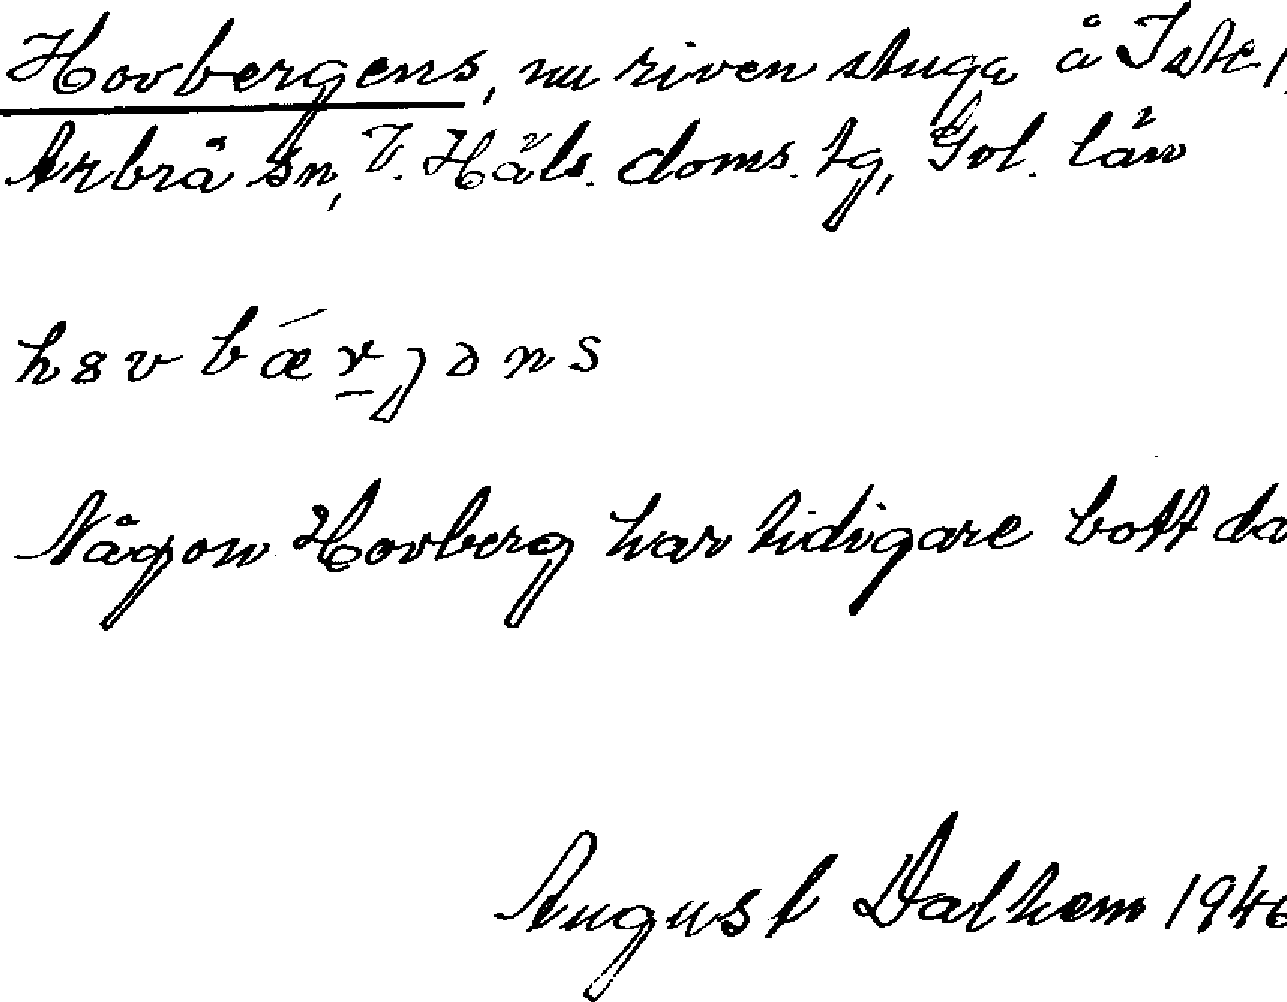 Hovbergens, nu riven stuga å Iste 1,
Arbrå sn, V. Häls. doms. tg, Gvl. län
Någon Hovberg har tidigare bott
August Dalhem 1946